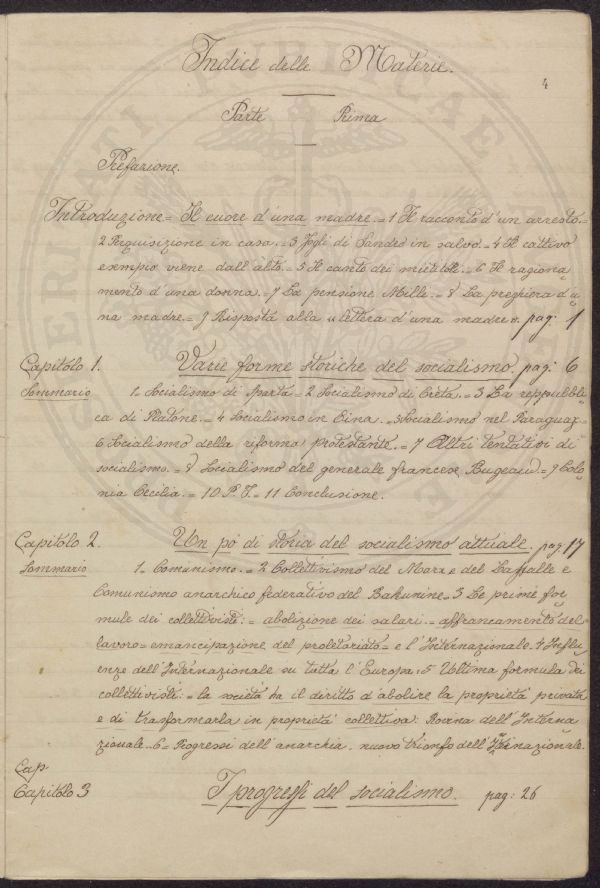 Indice delle Materie.
4
Parte Prima
Prefazione.
Introduzione = Il cuore d'una madre. = 1 Il racconto d'un arresto. =
2 Perquisizione in casa. = 3 Fogli di Sandro in salvo. = 4 Il cattivo
esempio viene dall'alto. = 5 Il canto dei mietitori. = 6 Il ragiona
mento d'una donna. = 7 La pensione Mille. = 8 La preghiera d'u
na madre. = 9 Risposta alla "lettera d'una madre". pag: 1
Capitolo 1. Varie forme storiche del socialismo. pag: 6
Sommario 1. Socialismo di Sparta = 2 Socialismo di Creta. = 3 La reppubbli
ca di Platone. = 4 Socialismo in Cina. = 5 Socialismo nel Paraguay =
6 Socialismo della riforma protestante. = 7 Altri tentativi di
socialismo. = 8 Socialismo del generale francese Bugeaud = 9 Colo
nia Cecilia. = 10 P. I. = 11 Conclusione.
Capitolo 2. Un pò di storia del socialismo attuale. pag: 17
Sommario 1 = Comunismo. = 2 Collettivismo del Marx e del Lassalle e
Comunismo anarchico federativo del Bakunine = 3 Le prime for
mule dei collettivisti: = abolizione dei salari = affrancamento del
lavoro = emancipazione del proletariato = e l'Internazionale. 4 Influ
enze dell'Internazionale su tutta l'Europa: 5 Ultima formula dei
collettivisti: = la società ha il diritto d'abolire la proprietà privata
e di trasformarla in proprietà collettiva: Rovina dell'Interna
zionale. = 6 = Progressi dell'anarchia, nuovo trionfo dell'Internazionale.
Cap
Capitolo 3 I progressi del socialismo. pag: 26